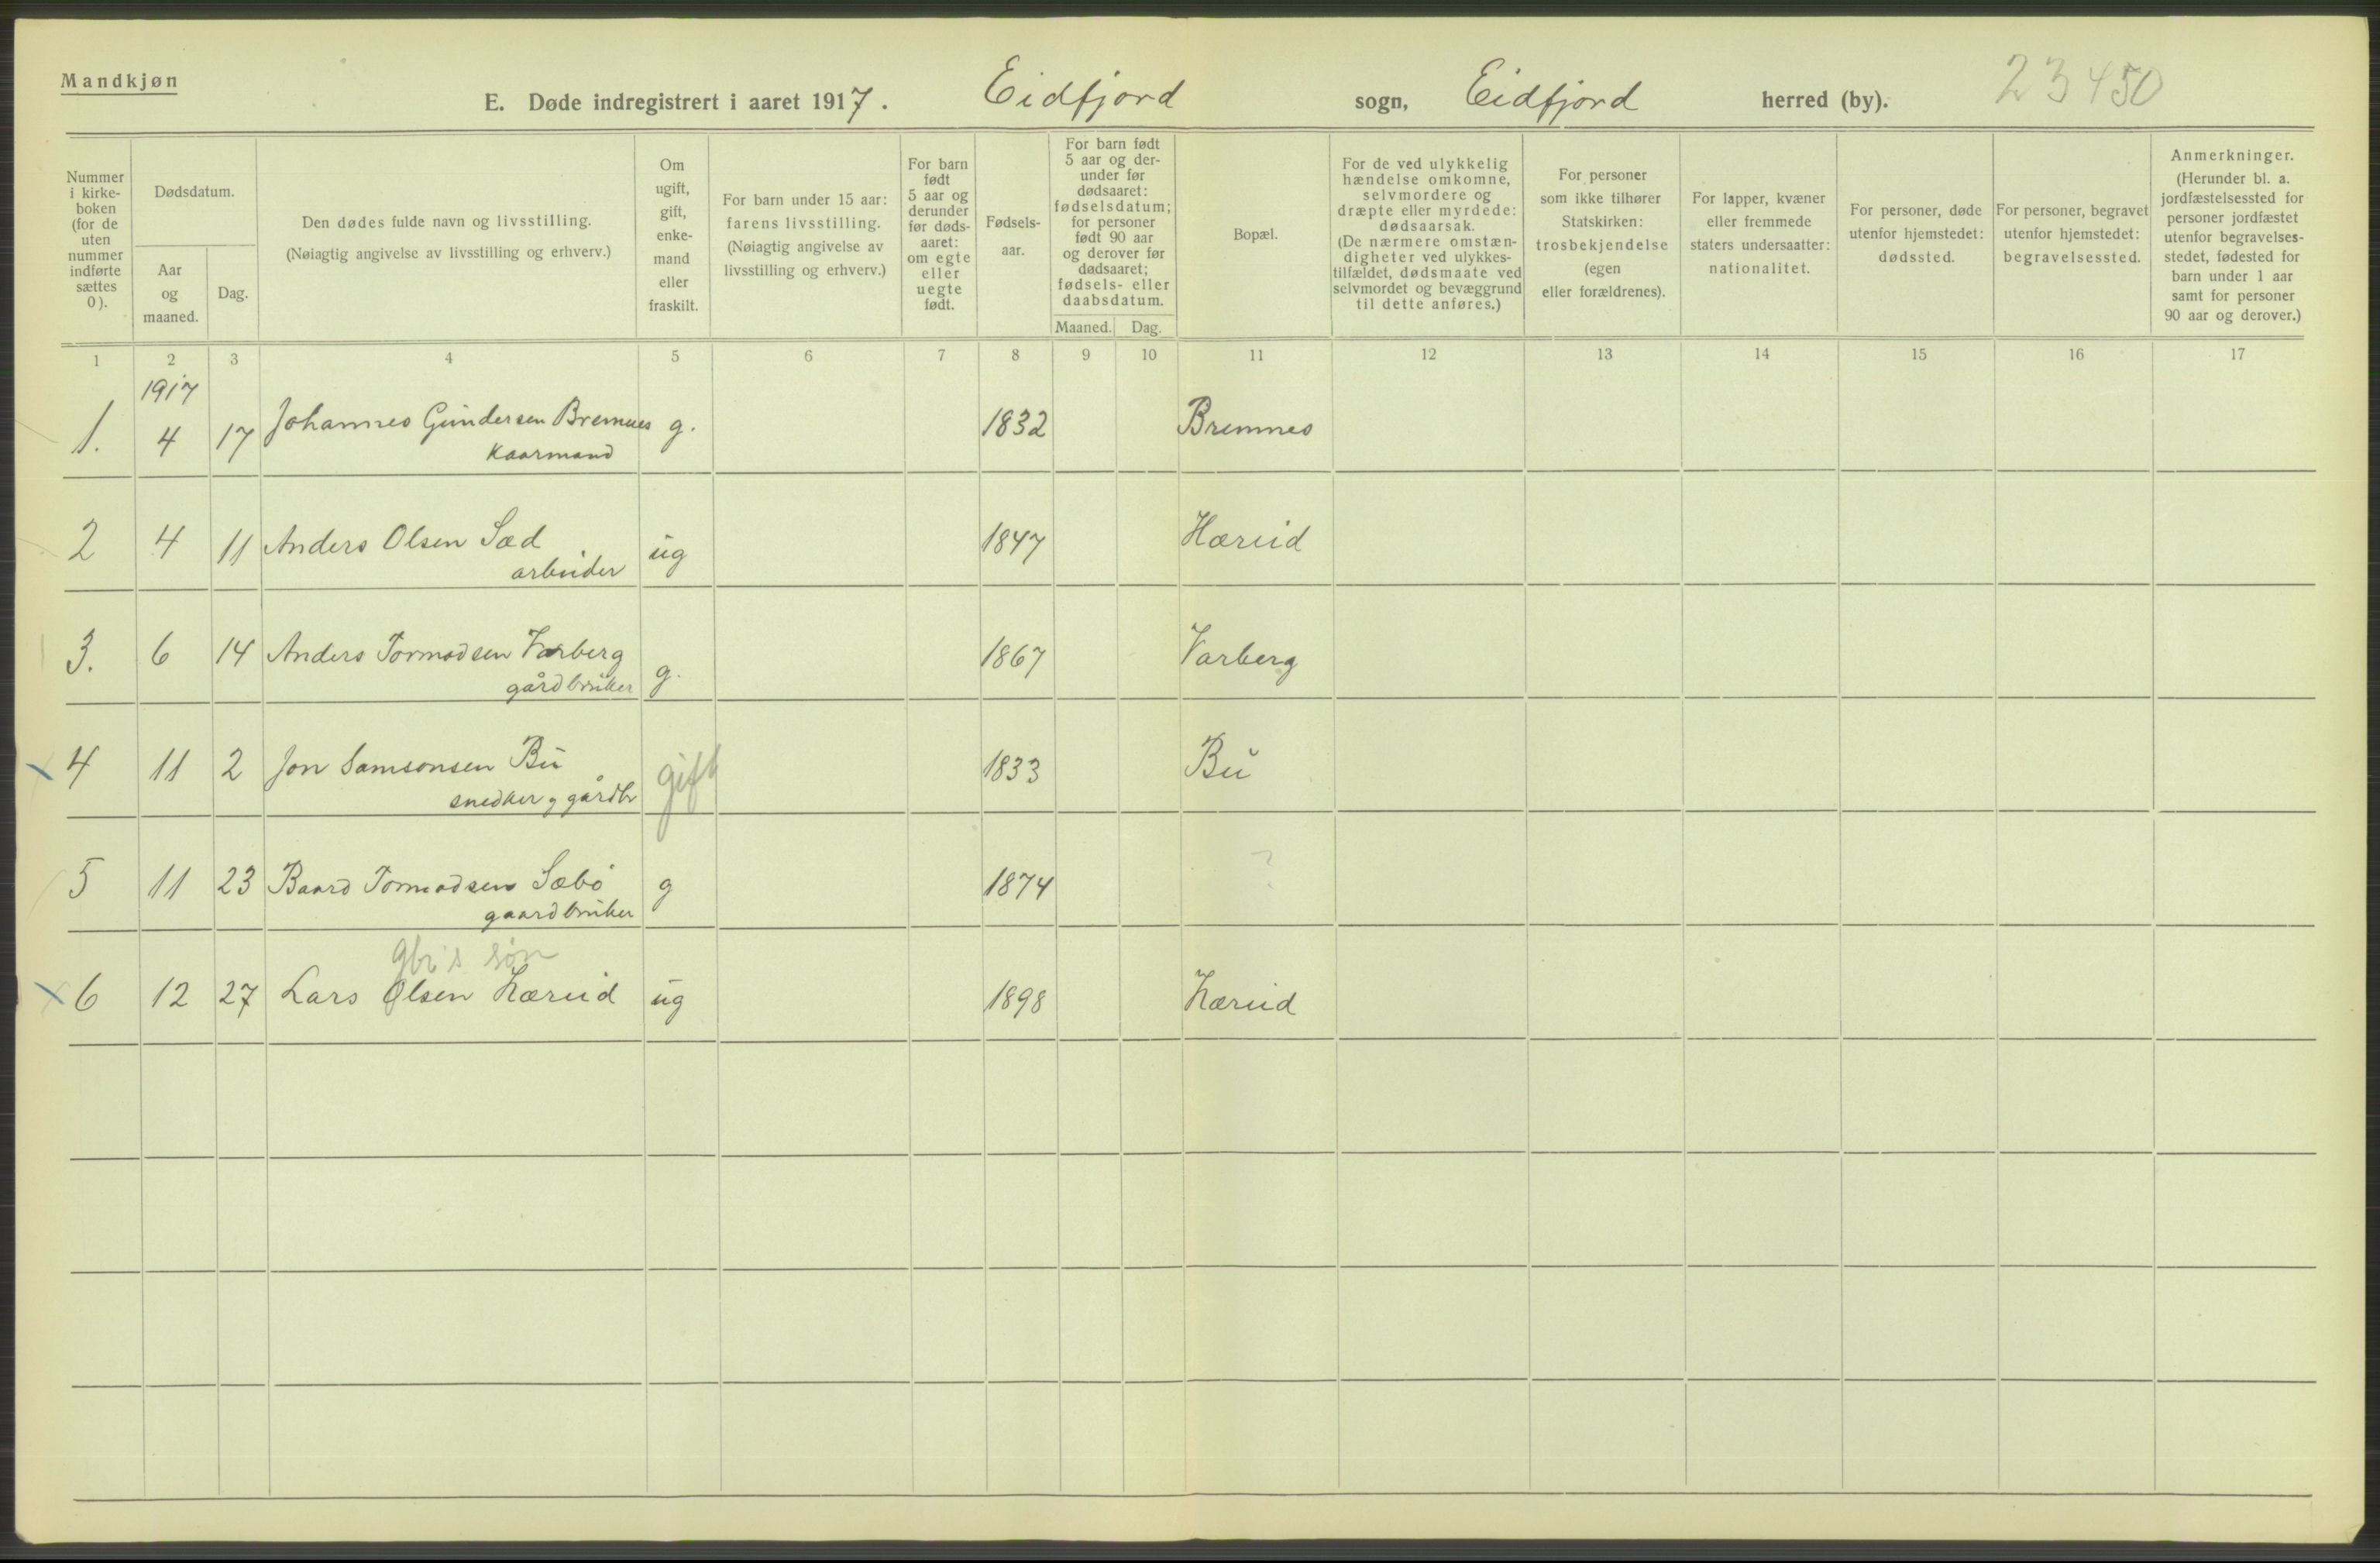 Mandkjøn
E. Døde indregistrert i aaret 1917. Eidfjord sogn, Eidfjord herred (by). 23450
Nummer
i kirke-
boken
(for de
uten
nummer
indførte
sættes
0).
Dødsdatum.
Aar
og
maaned.
Dag.
Den dødes fulde navn og livsstilling.
(Nøiagtig angivelse av livsstilling og erhverv.)
Om
ugift,
gift,
enke-
mand
eller
fraskilt.
For barn under 15 aar:
farens livsstilling.
(Nøiagtig angivelse av
livsstilling og erhverv.)
For barn
født
5 aar og
derunder
før døds-
aaret:
om egte
eller
uegte
født.
Fødsels-
aar.
For barn født
5 aar og der-
under før
dødsaaret:
fødselsdatum;
for personer
født 90 aar
og derover før
dødsaaret;
fødsels- eller
daabsdatum.
Maaned. Dag.
Bopæl.
For de ved ulykkelig
hændelse omkomne,
selvmordere og
dræpte eller myrdede:
dødsaarsak.
(De nærmere omstæn-
digheter ved ulykkes-
tilfældet, dødsmaate ved
selvmordet og bevæggrund
til dette anføres.)
For personer
som ikke tilhører
Statskirken:
trosbekjendelse
(egen
eller forældrenes).
For lapper, kvæner
eller fremmede
staters undersaatter:
nationalitet.
For personer, døde
utenfor hjemstedet:
dødssted.
For personer, begravet
utenfor hjemstedet:
begravelsessted.
Anmerkninger.
(Herunder bl. a.
jordfæstelsessted for
personer jordfæstet
utenfor begravelses-
stedet, fødested for
barn under 1 aar
samt for personer
90 aar og derover.)
1 2 3 4 5 6 7 8 9 10 11 12 13 14 15 16 17
1917
1. 4 17 Johannes Gundersen Bremnes g. 1832 Bremnes
Kaarmand
2 4 11 Anders Olsen Sæd ug 1847 Hæreid
arbeider
3. 6 14 Anders Tormodsen Varberg g. 1867 Varberg
gårdbruker
4 11 2 Jon Samsonsen Bu gift 1833 Bu
snedker g gårdbr
5 11 23 Baard Tormodsen Sæbö g 1874 ?
gaardbruker
gbr's søn
6 12 27 Lars Olsen Hæreid ug 1898 Hæreid